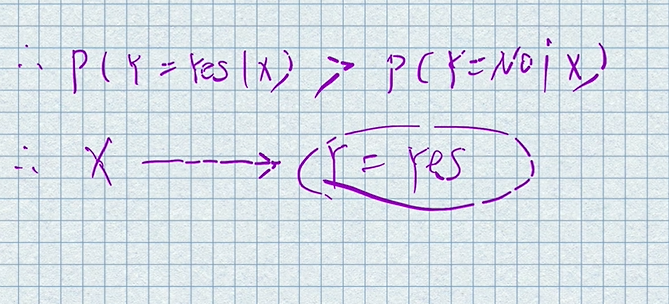 ∴ P(Y=Yes|X) > P(Y=No|X)
∴ X → Y = Yes